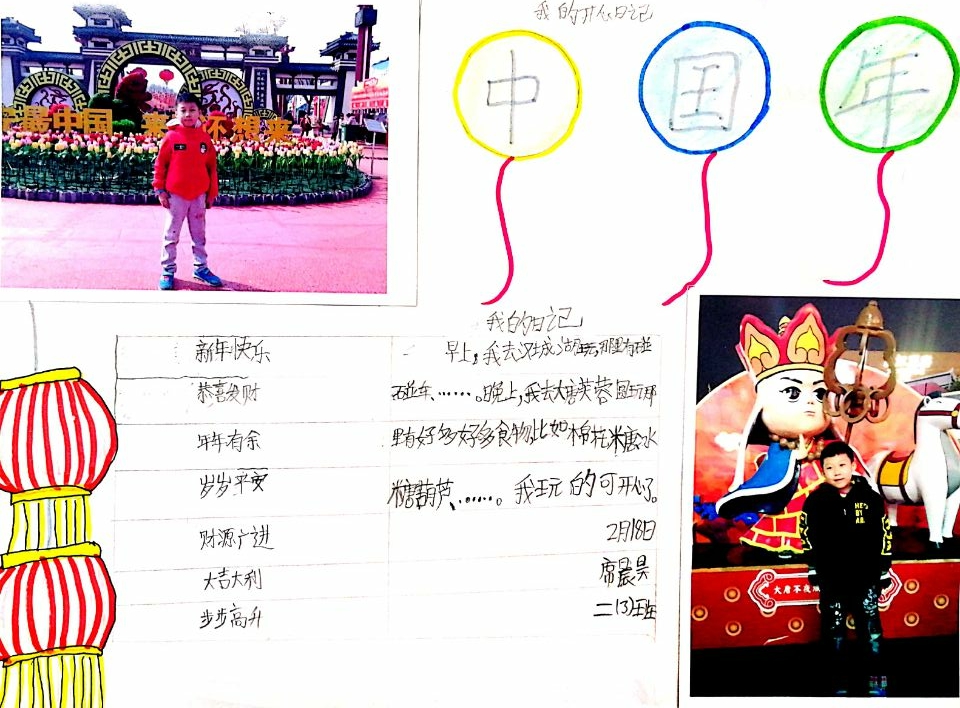 我的开心日记
中国年
中国
不想来
我的日记
新年快乐
恭喜发财
年年有余
岁岁平安
财源广进
大吉大利
步步高升
早上，我去汉城湖玩，那里有碰
碰车、……。晚上，我去大唐芙蓉园玩那
里有好多好多食物比如棉花糖冰
糖葫芦、……。我玩的可开心了。
2月18日
席晨昊
二(3)班
大唐不夜城